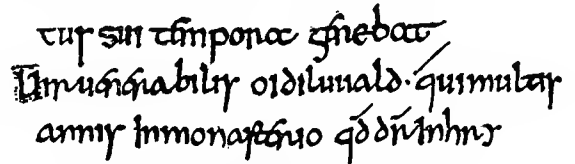 tus sui tempora gerebat
Uir uenerabilis oidiluuald· qui multis
annis inmonasterio qđ dr̄ Inhry